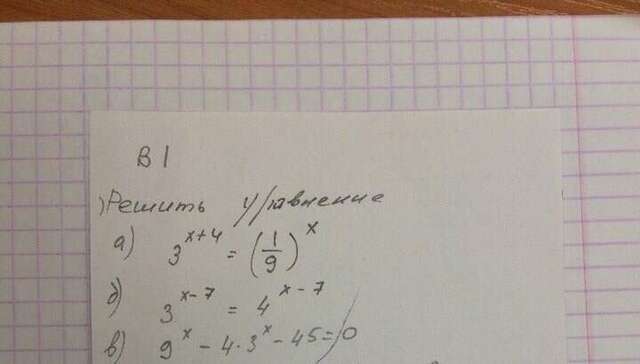 В 1
) Решить уравнение
а) 3^{x+4} = (1/9)^x
б) 3^{x-7} = 4^{x-7}
в) 9^x - 4·3^x - 45 = 0